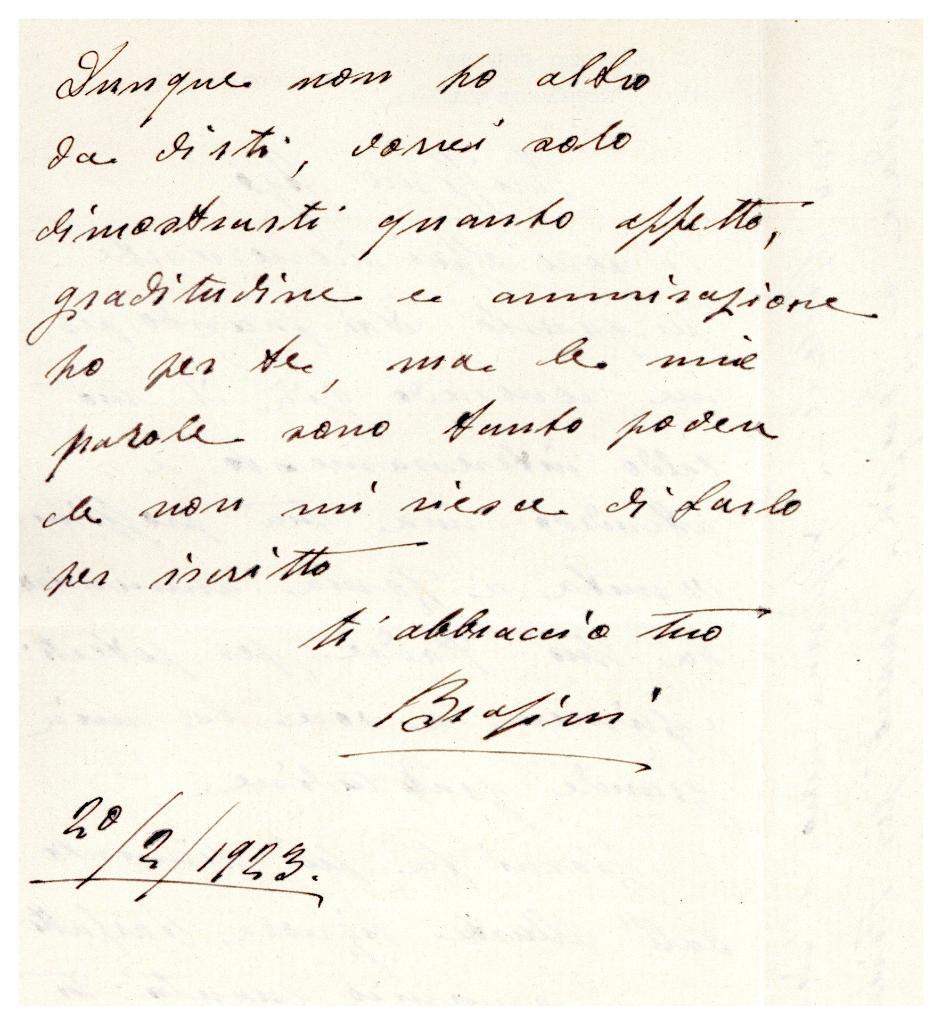 Dunque non ho altro
da dirti, vorrei solo
dimostrarti quanto affetto,
graditudine e ammirazione
ho per te, ma le mie
parole sono tanto povere
che non mi riesce di farlo
per iscritto
ti abbraccio tuo
Brasini
20/2/1923.